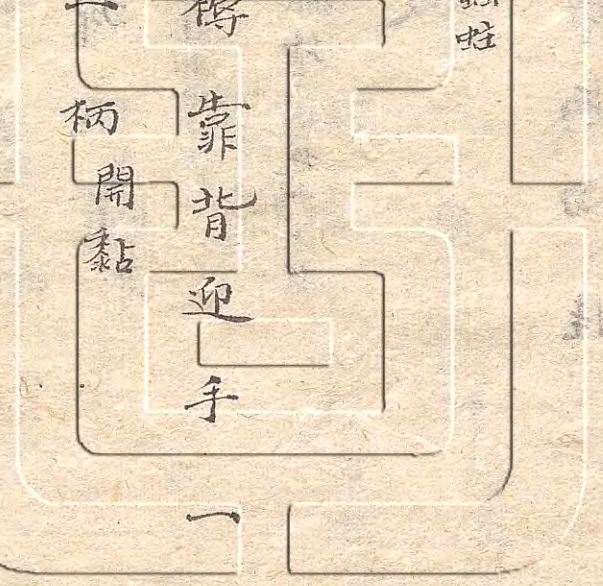 蛀
褥靠背迎手一
一柄開黏